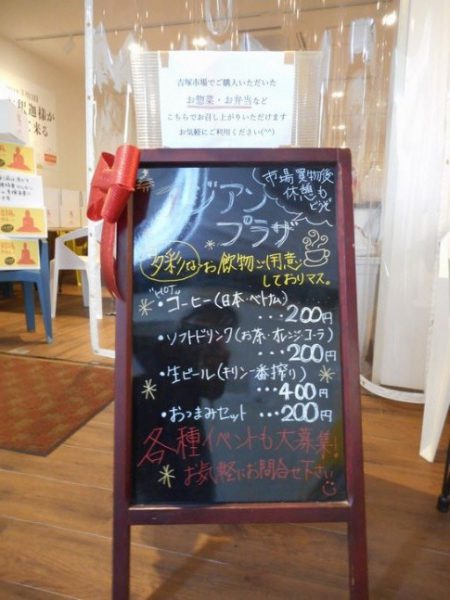 吉塚市場でご購入いただいた
お惣菜・お弁当など
こちらでお召し上がりいただけます
お気軽にご利用ください(^^)
アジアン
プラザ
市場買物後
休憩も
どうぞ
多彩なお飲物ご用意
しておりマス。
"HOT"
・コーヒー(日本・ベトナム)
・・・200円
・ソフトドリンク(お茶・オレンジ・コーラ)
・・・200円
・生ビール(キリン一番搾り)
・・・400円
・おつまみセット ・・・200円
各種イベントも大募集!
お気軽にお問合せ下さい
迦様が
来る